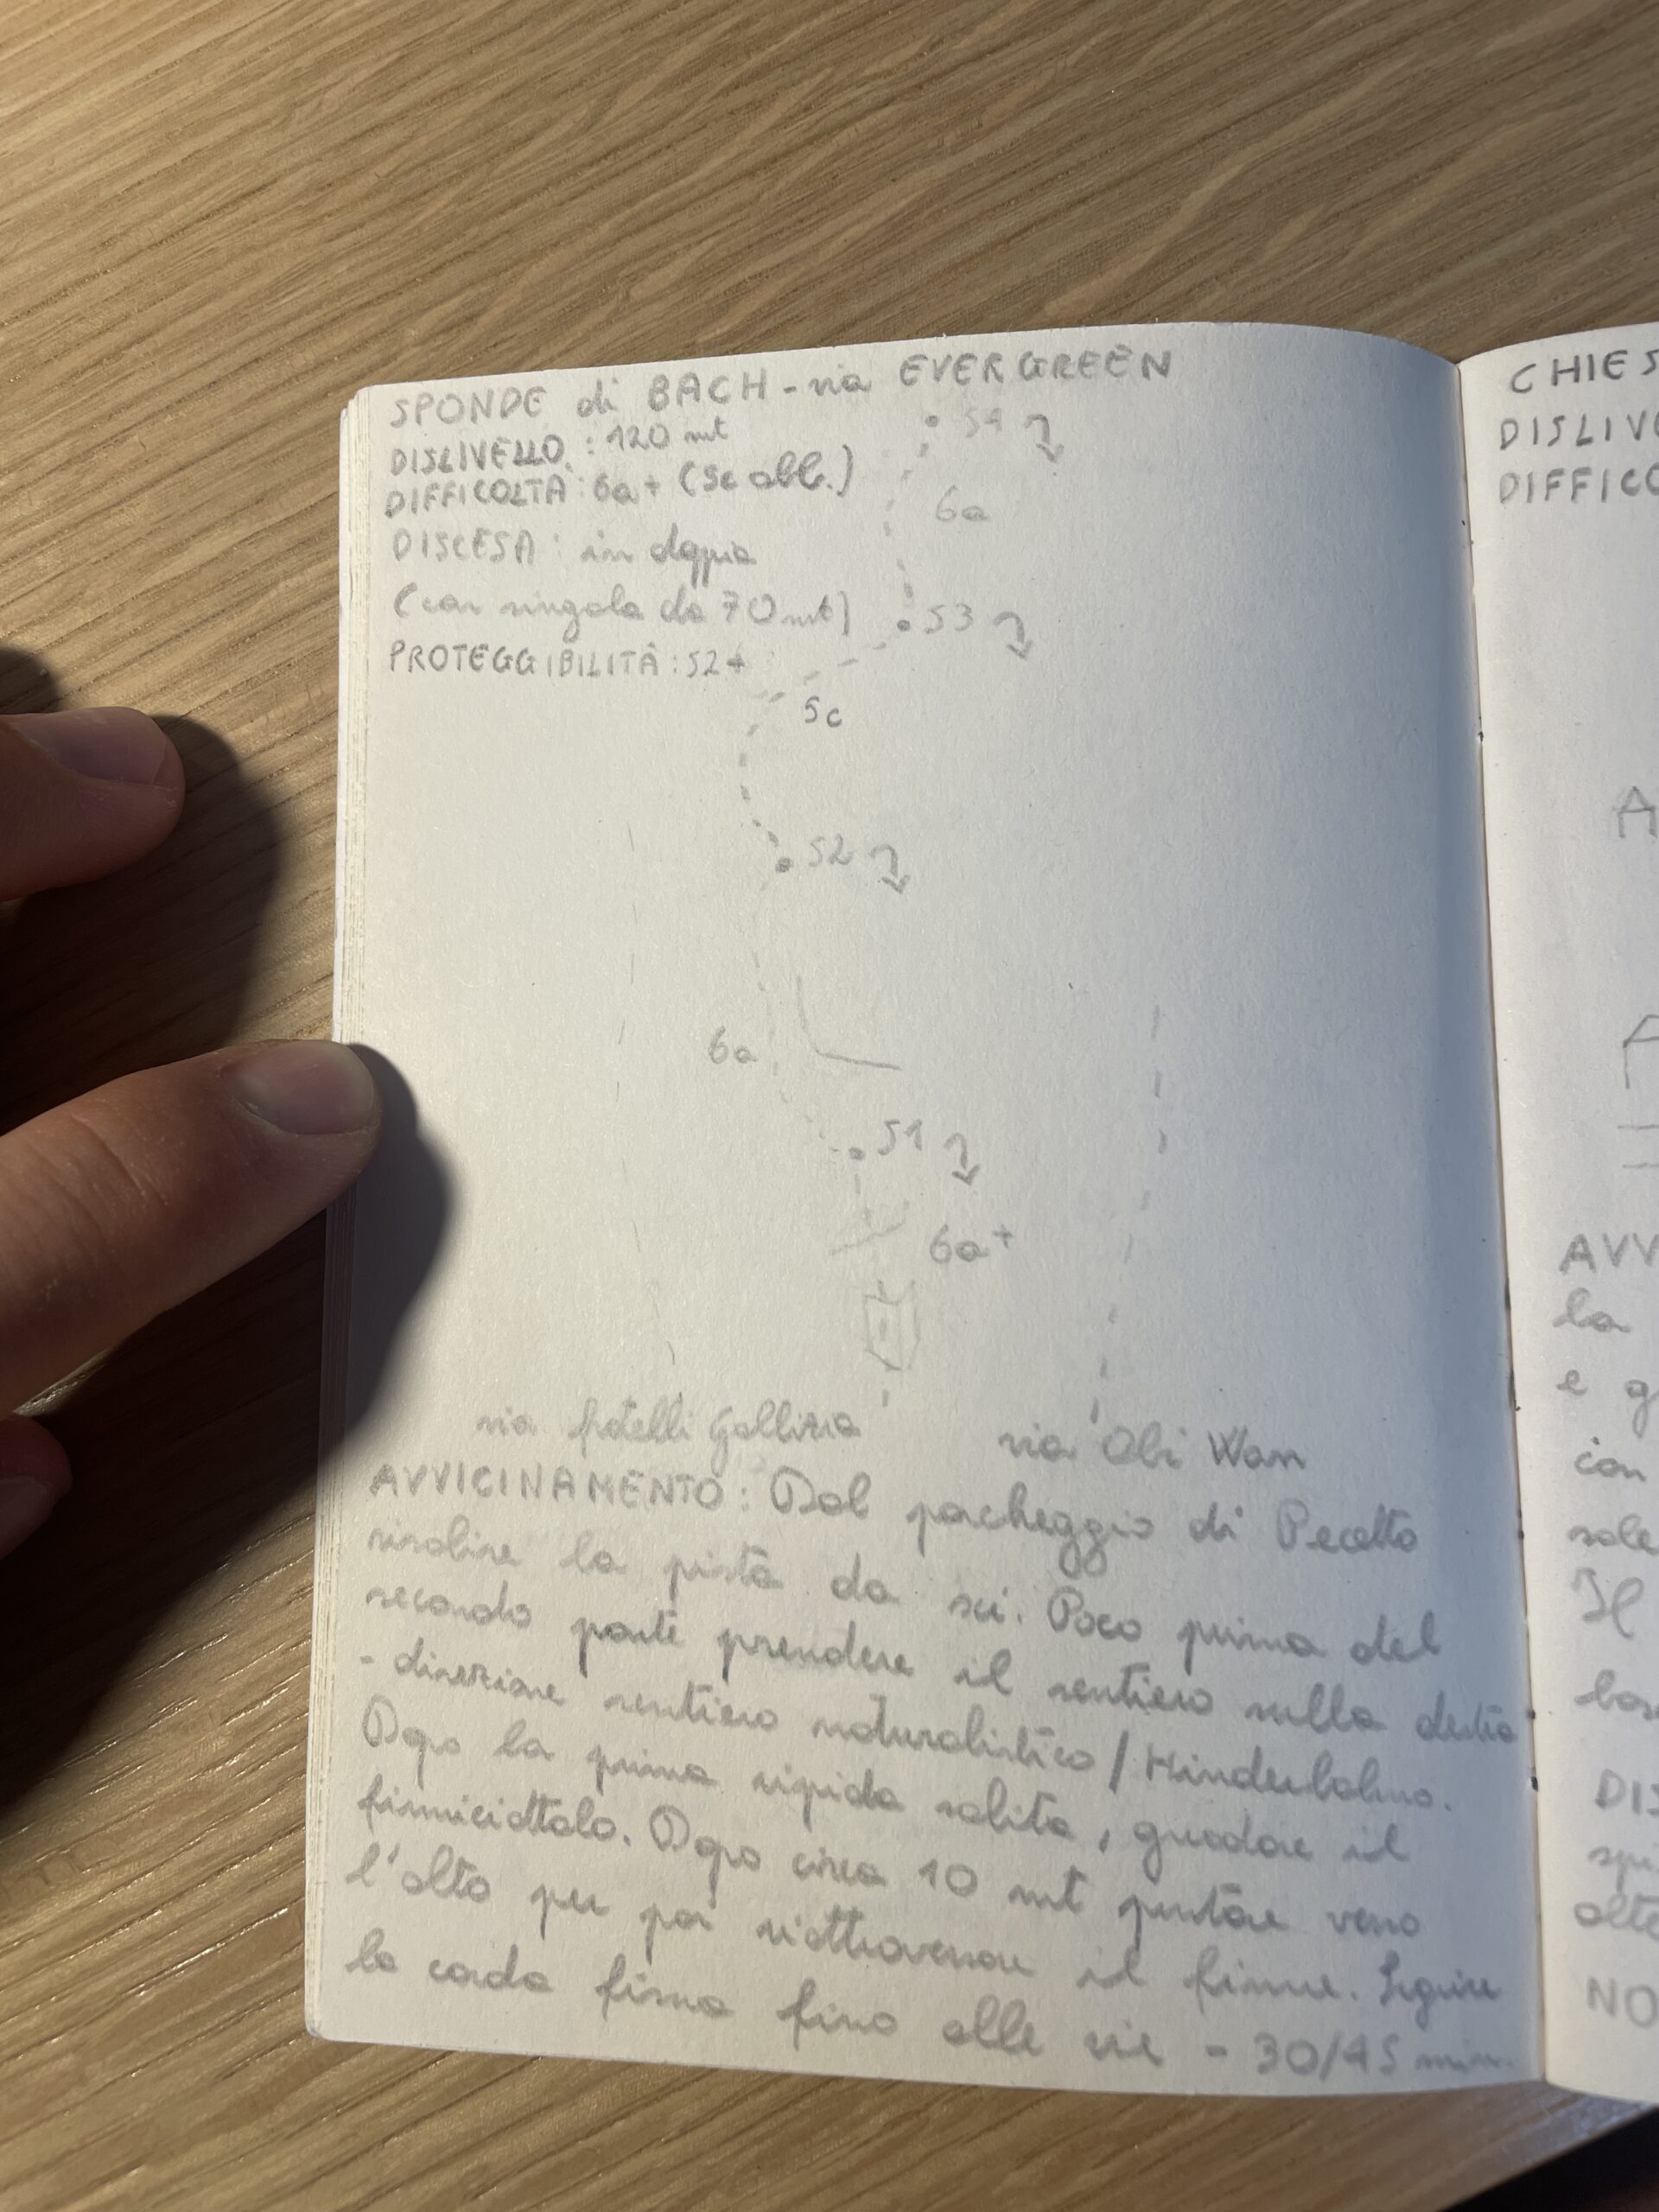 SPONDE di BACH - via EVERGREEN
DISLIVELLO : 120 mt
DIFFICOLTÀ : 6a+ (5c obb.)
DISCESA : in doppia
(con singola da 70 mt)
PROTEGGIBILITÀ : S2+
S4
6a
S3
5c
S2
6a
S1
6a+
via fratelli Gallizia
via Obi Wan
AVVICINAMENTO : Dal parcheggio di Pecetto
risalire la pista da sci. Poco prima del
secondo ponte prendere il sentiero sulla destra
- direzione sentiero naturalistico / Hinderbalmo.
Dopo la prima ripida salita, guadare il
fiumiciattolo. Dopo circa 10 mt puntare verso
l'alto per poi riattraversare il fiume. Seguire
la corda fissa fino alle vie - 30/45 min.
CHIES
DISLIVE
DIFFICO
A
A
AVV
la
e g
con
sole
Il
DIS
alte
NO